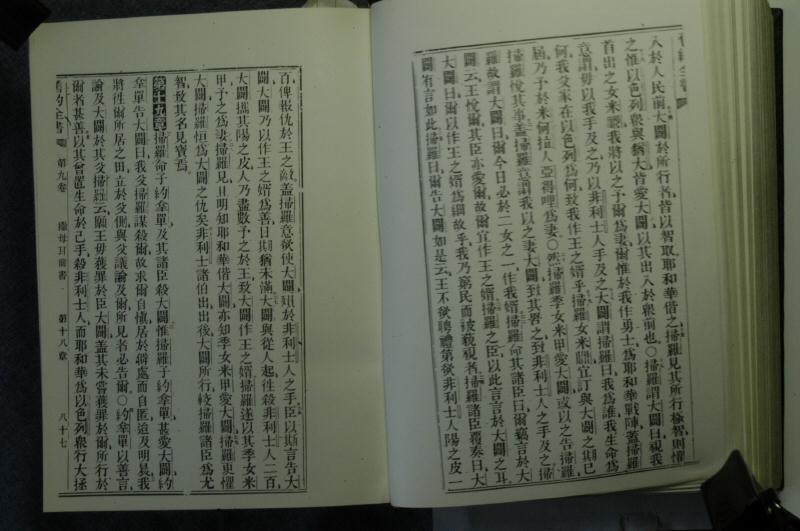 入於人民前大闢於所行者皆以智取耶和華偕之掃羅見其所行極智則懼
之惟以色列眾與猶大皆愛大闢以其出入於眾前也○掃羅謂大闢曰視我
首出之女米我將以之予爾為妻爾惟於我作勇士為耶和華戰陣蓋掃羅
意謂毋以我手及之乃以非利士人手及之大闢謂掃羅曰我為誰我生命為
何我父家在以色列為何致我作王之婿乎掃羅女米宜訂與大闢之期已
屆乃予於米何拉人亞得哩為妻○然掃羅季女米甲愛大闢或以之告掃羅
掃羅悅其事蓋掃羅意謂我以之妻大闢至其胥之致非利士人之手及之掃
羅故謂大闢曰爾今日必於二女之一作我婿掃羅命其諸臣曰爾竊言於大
闢云王悅爾其臣亦愛爾故爾宜作王之婿掃羅之臣以此言言於大闢之耳
大闢曰爾以作王之婿為細故乎我乃窮民而被藐視者掃羅諸臣覆奏曰大
闢有言如此掃羅曰爾告大闢如是云王不欲聘禮第欲非利士人陽之皮一
百俾報仇於王之敵蓋掃羅意欲使大闢殞於非利士人之手臣以斯言告大
闢大闢乃以作王之婿為善日期猶未滿大闢與從人起往殺非利士人二百
大闢攜其陽之皮人乃盡數予之於王致大闢作王之婿掃羅遂以其季女米
甲予之為妻掃羅見且明知耶和華偕大闢亦知季女米甲愛大闢掃羅更懼
大闢掃羅恒為大闢之仇矣非利士諸伯出出後大闢所行較掃羅諸臣為尤
智致其名見寶焉
第十九章掃羅命子約拿單及其諸臣殺大闢惟掃羅子約拿單甚愛大闢約
拿單告大闢曰我父掃羅謀殺爾故求爾自慎居於僻處而自匿迨及明晨我
將往爾所居之田立於父側與父議論及爾所見者必告爾○約拿單以善言
論及大闢於其父掃羅云願王毋獲罪於臣大闢蓋其未嘗獲罪於爾所行於
爾者甚善以其曾置生命於己手殺非利士人而耶和華為以色列眾行大拯
舊約全書 第九卷 撒母耳前書 第十八章 八十七